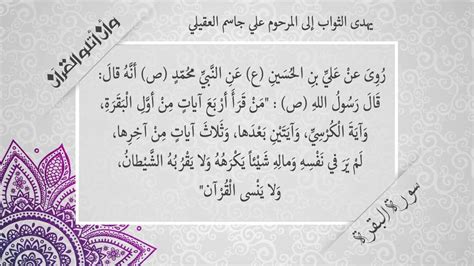 يهدى الثواب إلى المرحوم علي جاسم العقيلي
وأن أتلو القرآن
رُوِىَ عَنْ عَلِيِّ بنِ الحُسَينِ (ع) عَنِ النَّبِيِّ مُحَمَّدٍ (ص) أنَّهُ قالَ:
قَالَ رَسُولُ اللهِ (ص) : "مَنْ قَرَأَ أَرْبَعَ آيَاتٍ مِنْ أَوَّلِ البَقَرَةِ،
وَآيَةَ الْكُرْسِيِّ، وَآيَتَيْنِ بَعْدَهَا، وَثَلَاثَ آيَاتٍ مِنْ آخِرِهَا،
لَمْ يَرَ في نَفْسِهِ وَمالِهِ شَيْئاً يَكْرَهُهُ وَلَا يَقْرُبُهُ الشَّيْطَانُ،
وَلَا يَنْسى الْقُرْآن"
سورة البقرة